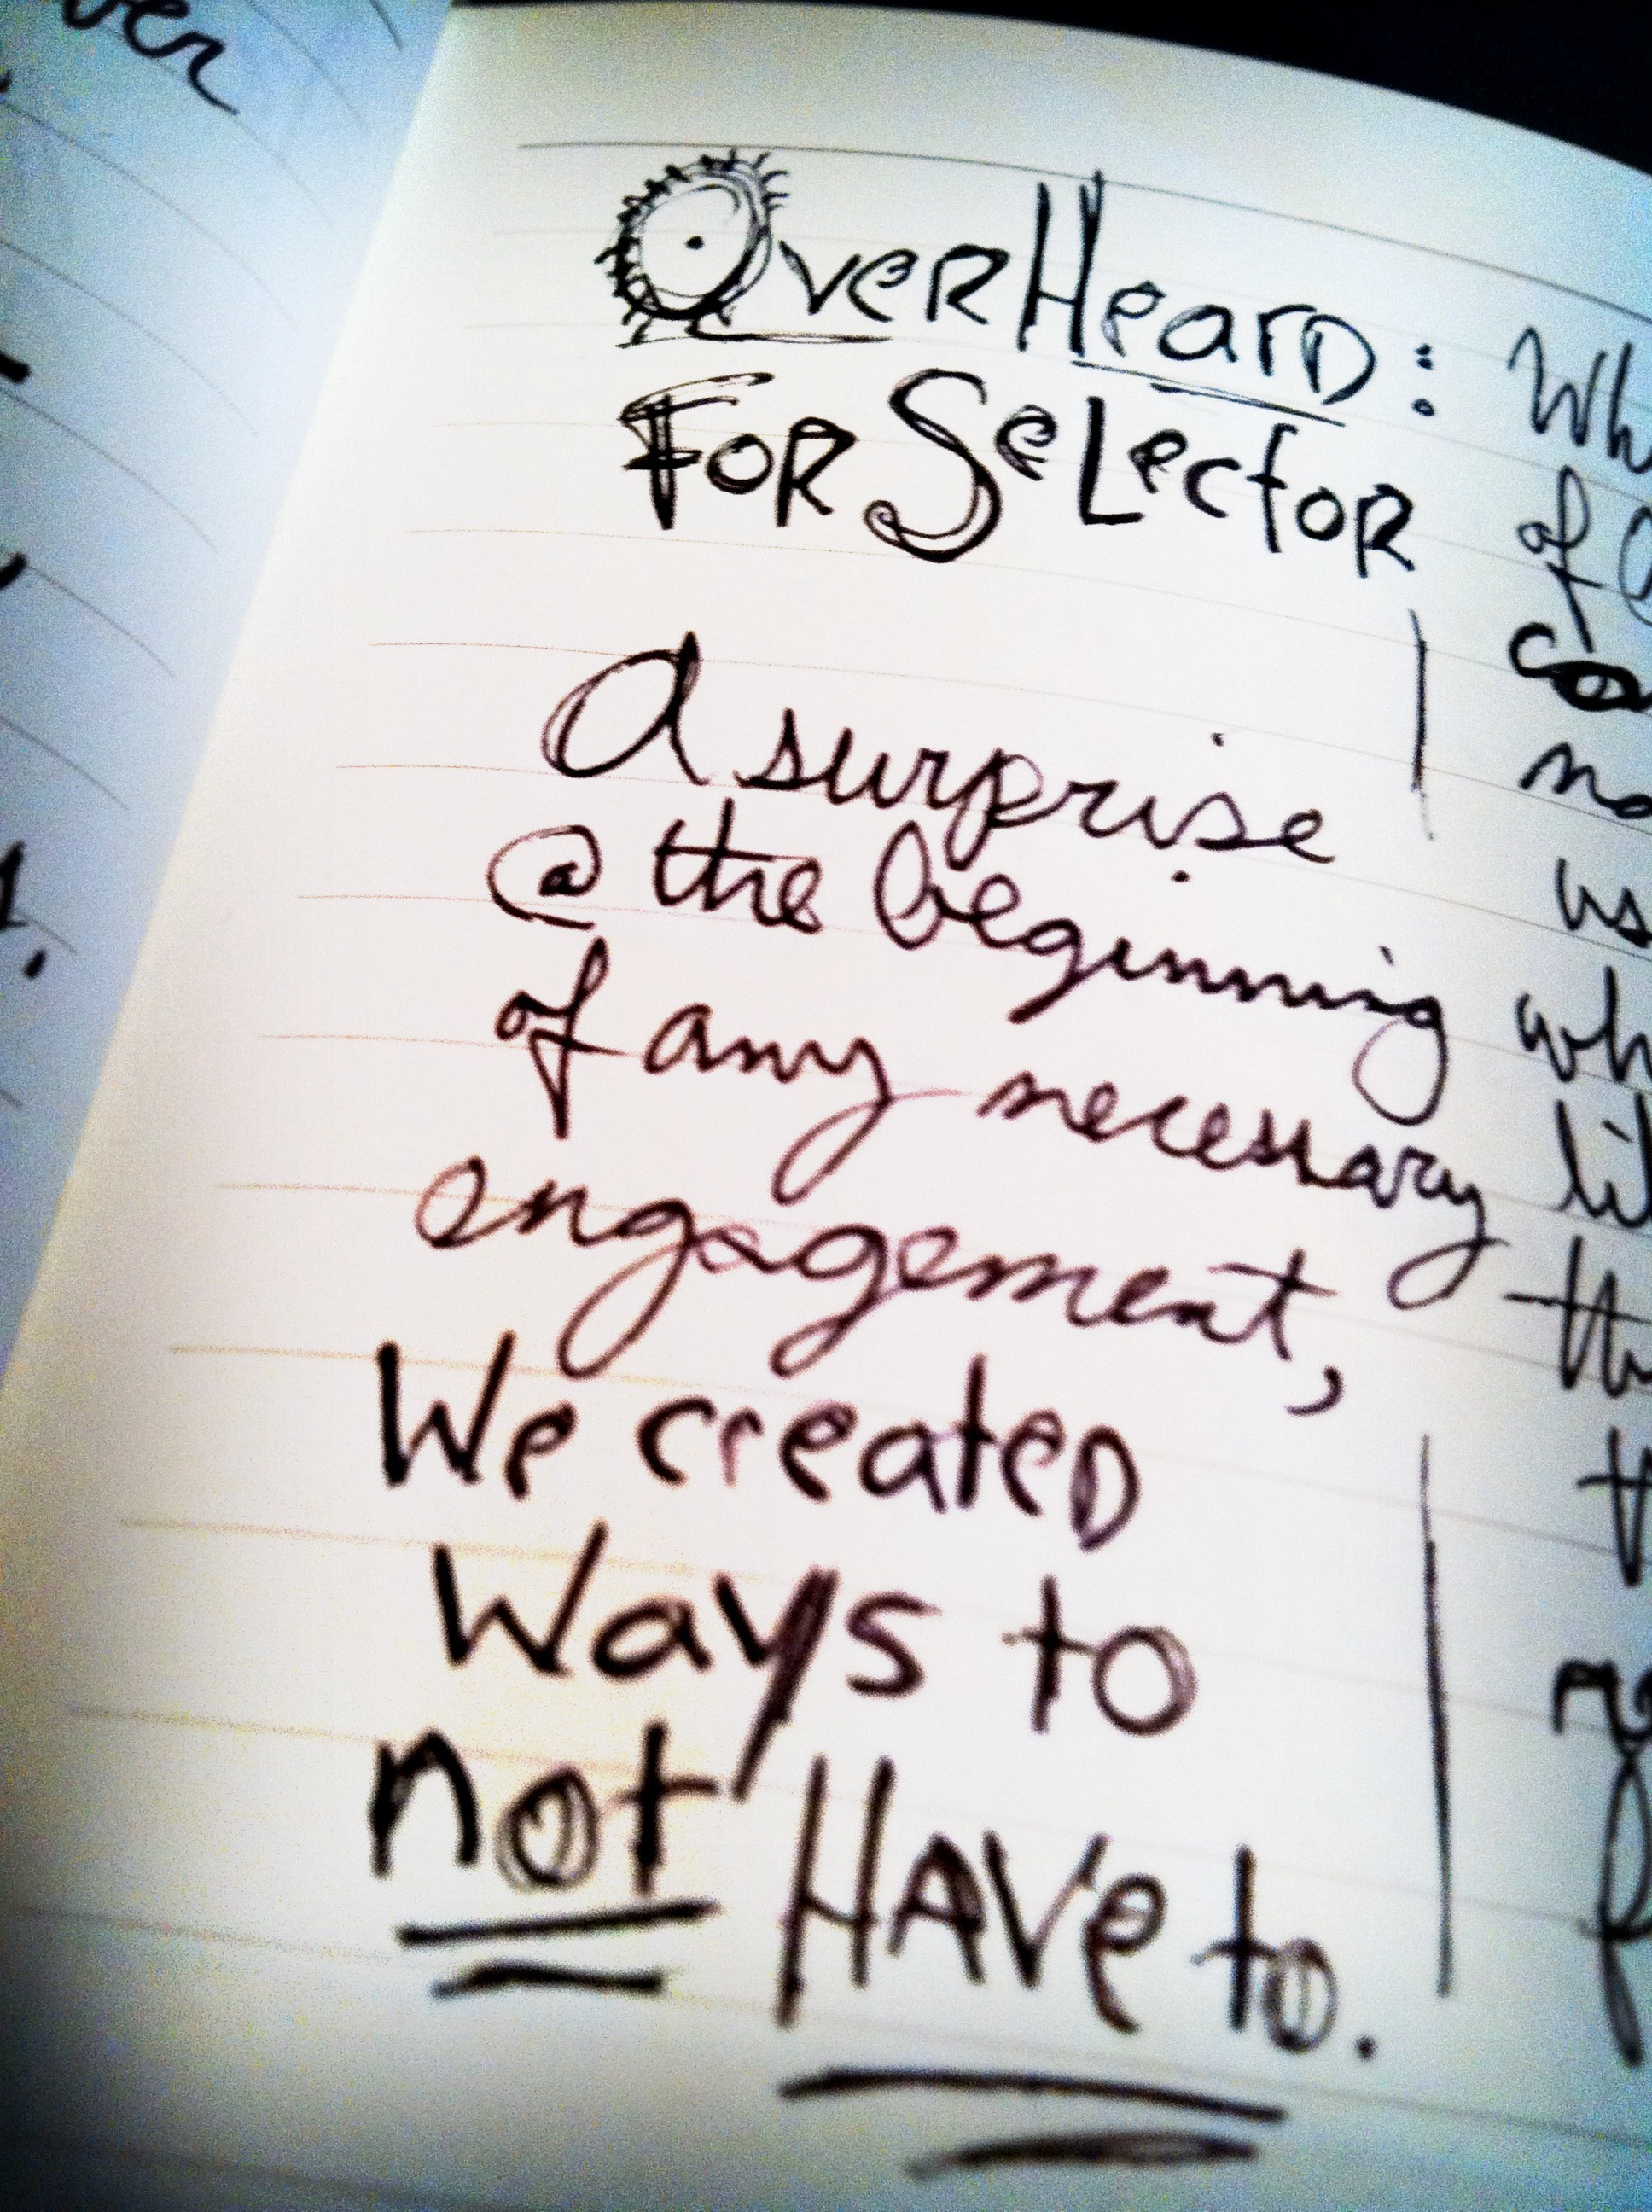 OverHearD:
FOR SeLectoR
A surprise
@ the beginning
of any necessary
engagement,
We createD
Ways to
not HAVe to.
of
us